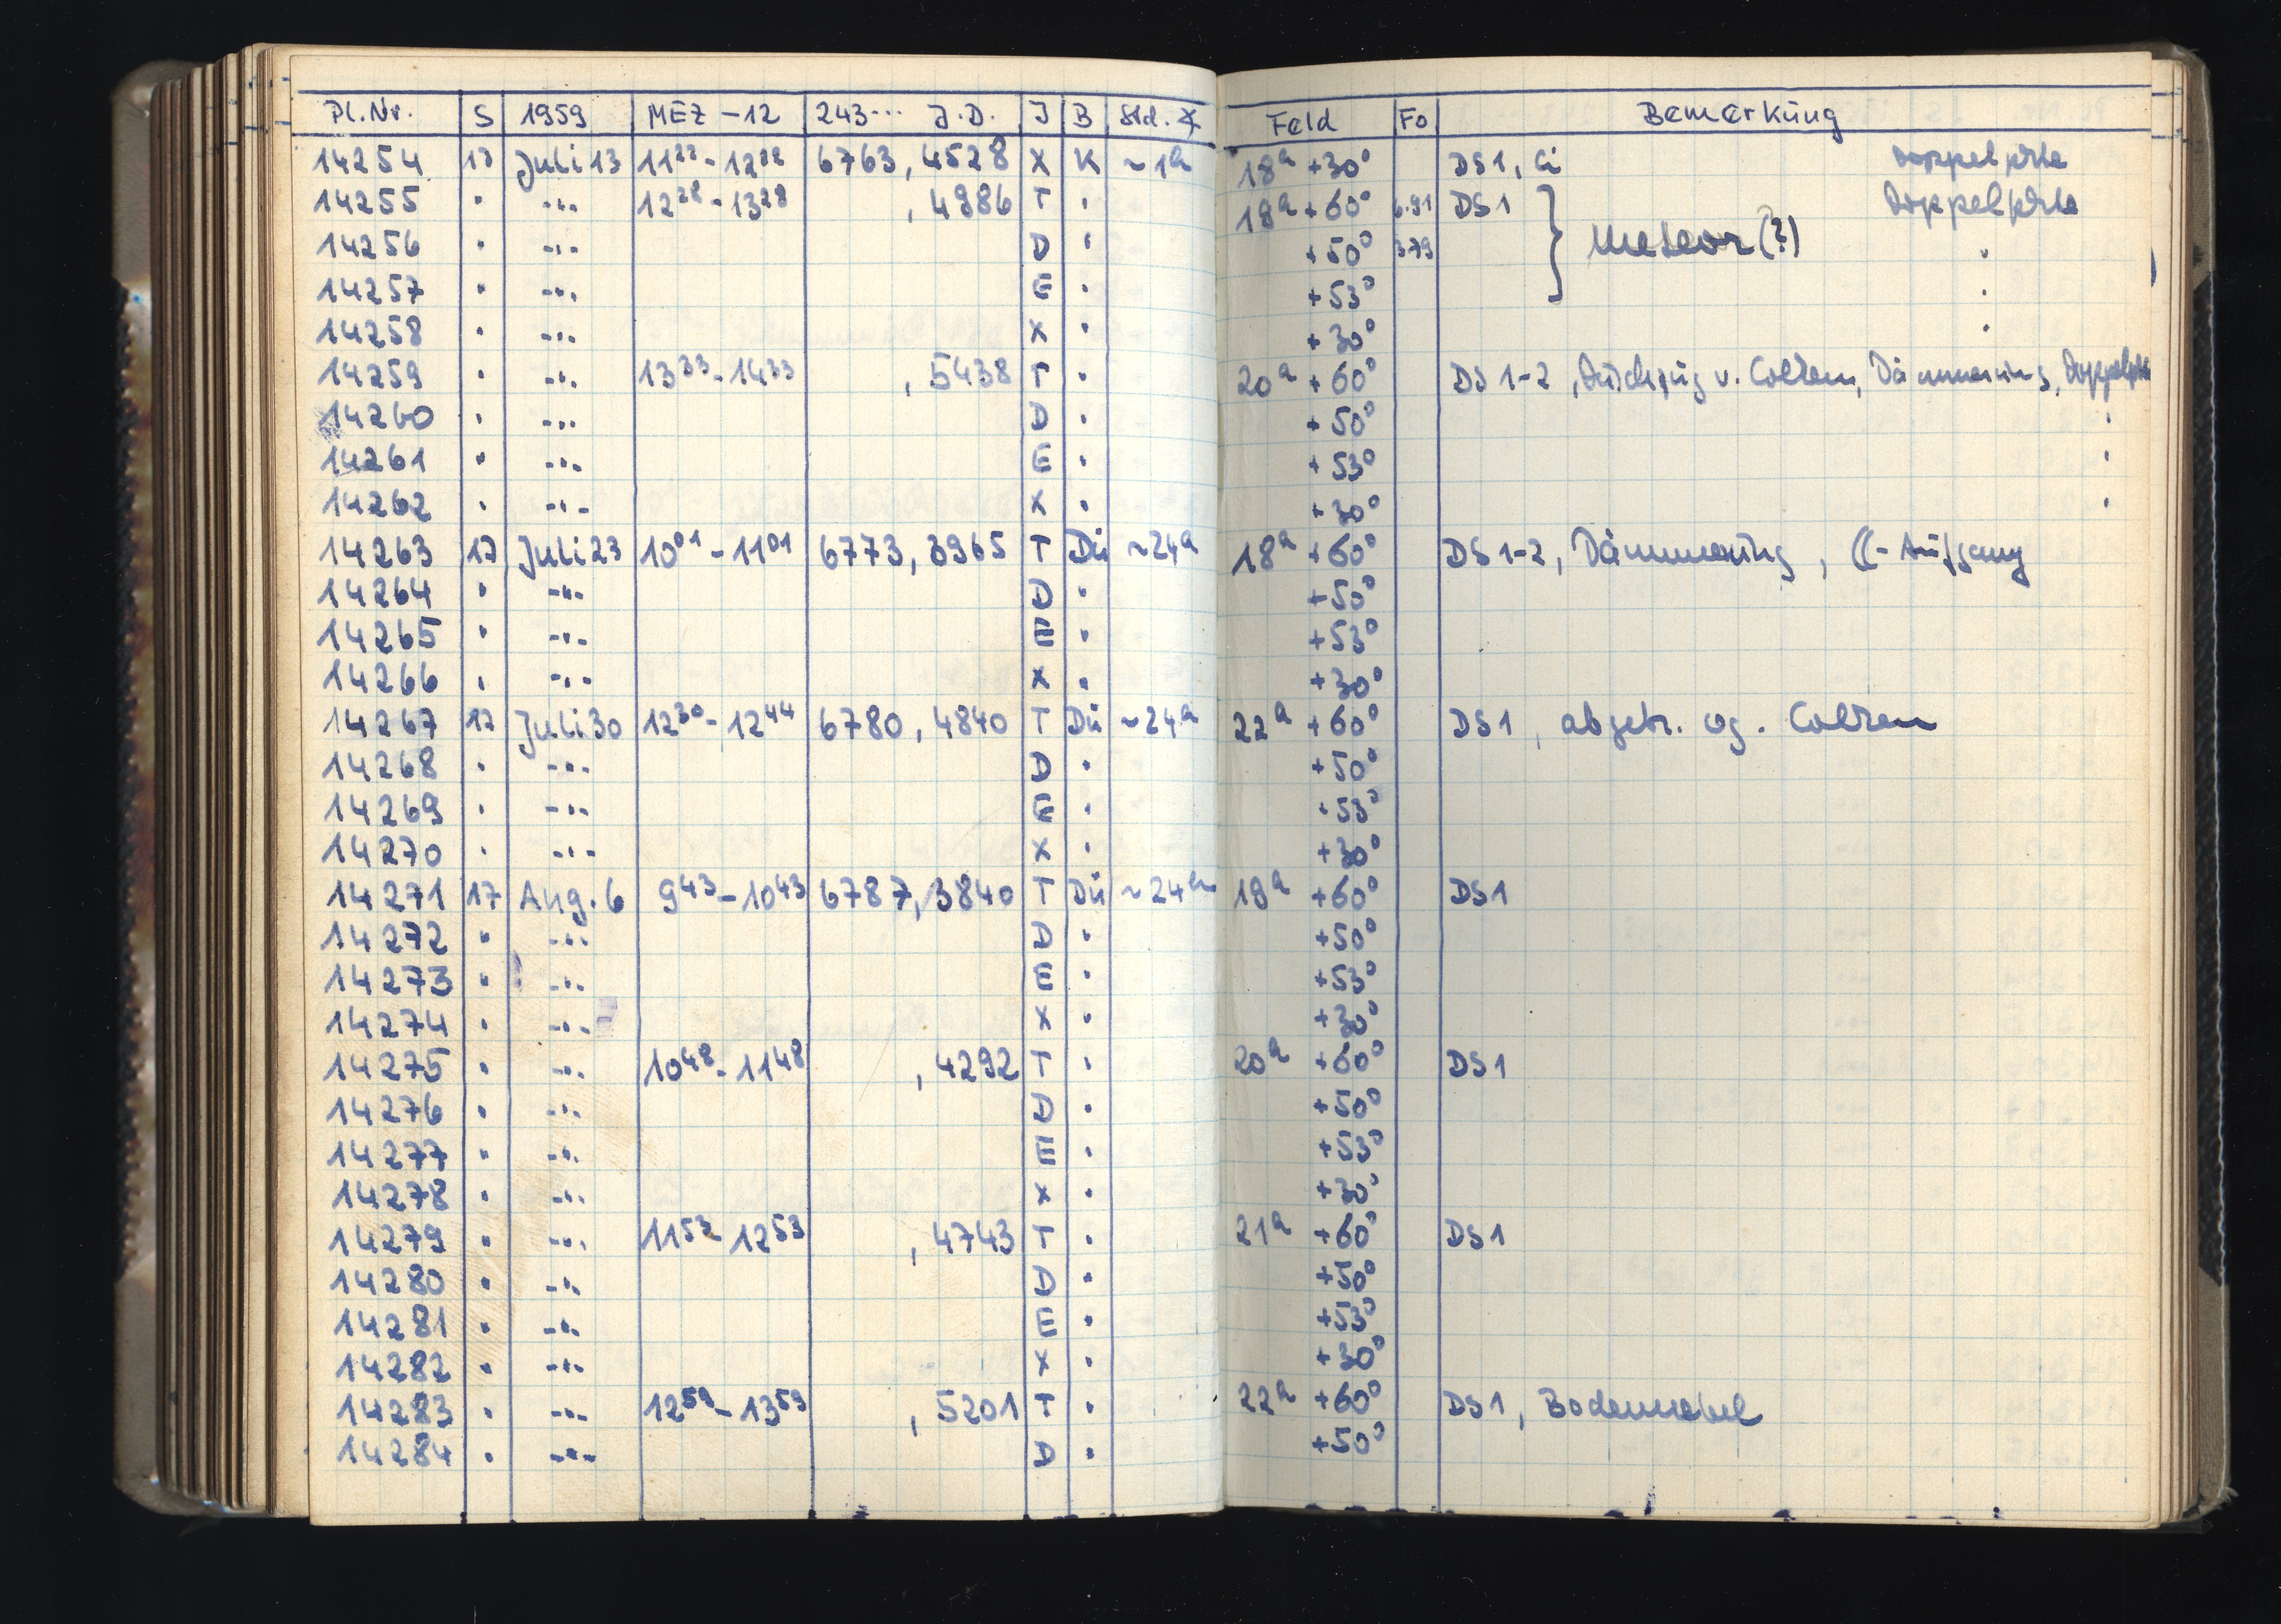 Pl.Nr. S 1959 MEZ -12 243... J.D. J B Std. Feld Fo Bemerkung
14254 17 Juli 13 11 6763, 4528 X K ~1h 18h +30° DS1, Ci
14255 " -"- 12²⁸-13²⁸ , 4986 T " 19h +60° DS1 Meteor(?)
14256 " -"- D " +50° 379 "
14257 " -"- E " +53° "
14258 " -"- X " +30° "
14259 " -"- 13³³-14³³ , 5438 T " 20h +60° DS 1-2, v. Colten, Dämmerung,
14260 " -"- D " +50° "
14261 " -"- E " +53° "
14262 " -"- X " +30° "
14263 17 Juli 23 10⁰¹-11⁰¹ 6773, 3965 T Dü ~24h 18h +60° DS 1-2, Dämmerung, ☾-Aufgang
14264 " -"- D " +50°
14265 " -"- E " +53°
14266 " -"- X " +30°
14267 17 Juli 30 12³⁰-12⁴⁴ 6780, 4840 T Dü ~24h 22h +60° DS1, abgebr. wg. Colten
14268 " -"- D " +50°
14269 " -"- E " +53°
14270 " -"- X " +30°
14271 17 Aug. 6 9⁴³-10⁴³ 6787, 3840 T Dü ~24h 19h +60° DS1
14272 " -"- D " +50°
14273 " -"- E " +53°
14274 " -"- X " +30°
14275 " -"- 10⁴⁸-11⁴⁸ , 4292 T " 20h +60° DS1
14276 " -"- D " +50°
14277 " -"- E " +53°
14278 " -"- X " +30°
14279 " -"- 11⁵³-12⁵³ , 4743 T " 21h +60° DS1
14280 " -"- D " +50°
14281 " -"- E " +53°
14282 " -"- X " +30°
14283 " -"- 12⁵⁹-13⁵⁹ , 5201 T " 22h +60° DS1, Bodennebel
14284 " -"- D " +50°